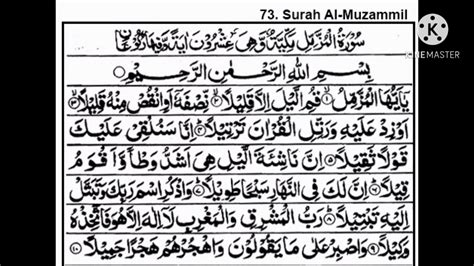 73. Surah Al-Muzammil
KINEMASTER
سُوْرَةُ الْمُزَّمِّلِ مَكِّيَّةٌ وَّهِيَ عِشْرُوْنَ اٰيَةً وَّفِيْهَا رُكُوْعَانِ
بِسْمِ اللهِ الرَّحْمٰنِ الرَّحِيْمِ
يٰۤاَيُّهَا الْمُزَّمِّلُ ۙ﴿۱﴾ قُمِ الَّيْلَ اِلَّا قَلِيْلًا ۙ﴿۲﴾ نِّصْفَهٗۤ اَوِ انْقُصْ مِنْهُ قَلِيْلًا ۙ﴿۳﴾
اَوْ زِدْ عَلَيْهِ وَرَتِّلِ الْقُرْاٰنَ تَرْتِيْلًا ؕ﴿۴﴾ اِنَّا سَنُلْقِيْ عَلَيْكَ
قَوْلًا ثَقِيْلًا ﴿۵﴾ اِنَّ نَاشِئَةَ الَّيْلِ هِيَ اَشَدُّ وَطْاً وَّاَقْوَمُ
قِيْلًا ؕ﴿۶﴾ اِنَّ لَكَ فِي النَّهَارِ سَبْحًا طَوِيْلًا ؕ﴿۷﴾ وَاذْكُرِ اسْمَ رَبِّكَ وَتَبَتَّلْ
اِلَيْهِ تَبْتِيْلًا ؕ﴿۸﴾ رَبُّ الْمَشْرِقِ وَالْمَغْرِبِ لَاۤ اِلٰهَ اِلَّا هُوَ فَاتَّخِذْهُ
وَكِيْلًا ﴿۹﴾ وَاصْبِرْ عَلٰى مَا يَقُوْلُوْنَ وَاهْجُرْهُمْ هَجْرًا جَمِيْلًا ﴿۱۰﴾